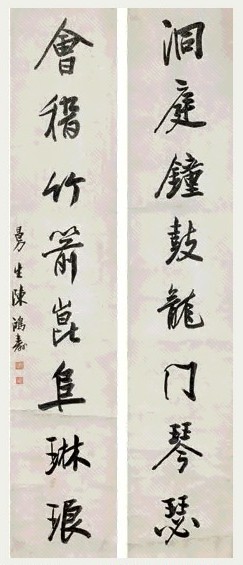 洞庭鐘鼓龍门琴瑟
會稽竹箭崑阜琳琅
曼生陳鴻壽